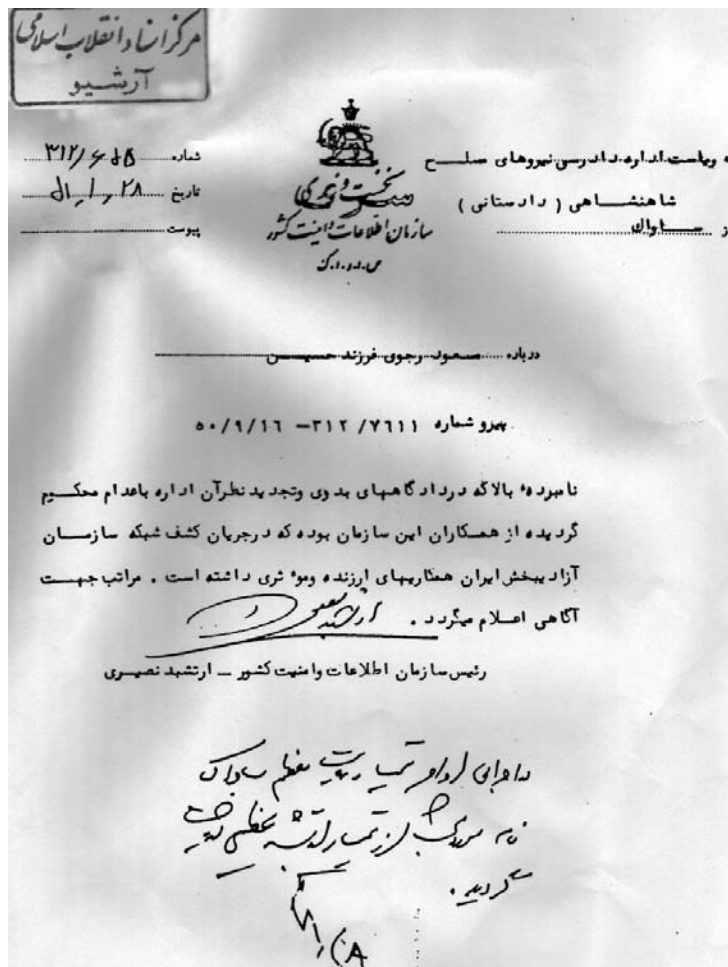 مرکز اسناد انقلاب اسلامی
آرشیو
ه ریاست اداره دادرسی نیروهای مسلح
شاهنشاهی ( دادستانی )
از ساواك
نخست وزیری
سازمان اطلاعات و امنیت کشور
س.ا.و.ا.ک
شماره ۳۱۲/
تاریخ ۲۸ / ۱ / ۵۱
پیوست
درباره مسعود رجوی فرزند حسین
پیرو شماره ۷۶۱۱/ ۳۱۲ - ۵۰/۹/۱۶
نامبرده بالا که در دادگاههای بدوی وتجدید نظرآن اداره باعدام محکوم
گردیده از همکاران این سازمان بوده که درجریان کشف شبکه سازمان
آزادیبخش ایران همکاریهای ارزنده وموءثری داشته است . مراتب جهت
آگاهی اعلام میگردد .
رئیس سازمان اطلاعات وامنیت کشور - ارتشبد نصیری
اوامر تیمسار ریاست معظم ساواک
نامه
گردید .